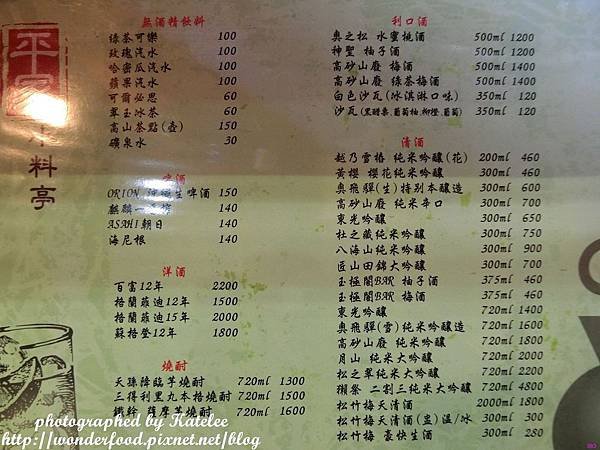 平
料亭
無酒精飲料
綠茶可樂 100
玫瑰汽水 100
哈密瓜汽水 100
蘋果汽水 100
可爾必思 60
翠玉冰茶 60
高山茶點(壺) 150
礦泉水 30
啤酒
ORION 生啤酒 150
麒麟一 140
ASAHI朝日 140
海尼根 140
洋酒
百富12年 2200
格蘭菲迪12年 1500
格蘭菲迪15年 2000
蘇格登12年 1800
燒酎
天孫降臨芋燒酎 720ml 1300
三得利黑丸本格燒酎 720ml 1500
鐵幹 薩摩芋燒酎 720ml 1600
利口酒
奧之松 水蜜桃酒 500ml 1200
神聖 柚子酒 500ml 1200
高砂山廢 梅酒 500ml 1400
高砂山廢 綠茶梅酒 500ml 1400
白色沙瓦(冰淇淋口味) 350ml 120
沙瓦(黑醋栗,葡萄柚,柳橙,葡萄) 350ml 120
清酒
越乃雪椿 純米吟釀(花) 200ml 460
黃櫻 櫻花純米吟釀 300ml 460
奧飛驒(生)特别本釀造 300ml 600
高砂山廢 純米辛口 300ml 700
東光吟釀 300ml 650
杜之藏純米吟釀 300ml 750
八海山純米吟釀 300ml 900
匠山田錦大吟釀 300ml 700
玉極閣BAR 柚子酒 375ml 460
玉極閣BAR 梅酒 375ml 460
東光吟釀 720ml 1400
奧飛驒(雪)純米吟釀造 720ml 1600
高砂山廢 純米吟釀 720ml 1800
月山 純米大吟釀 720ml 1600
松之翠純米大吟釀 720ml 2200
獺祭 二割三純米大吟釀 720ml 4800
松竹梅天清酒 2000ml 1800
松竹梅天清酒(壺)溫/冰 300ml 300
松竹梅 豪快生酒 300ml 280
photographed by Katelee
http://wonderfood.pixnet.net/blog